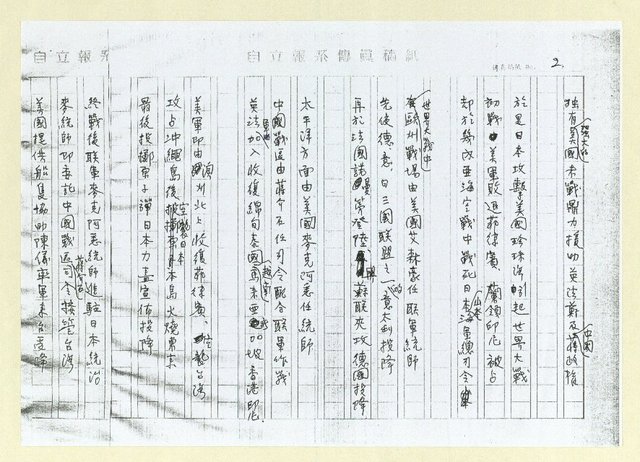 自立報系傳真稿紙
自立報系
2.
獨有強大的美國未戰鼎力援助英法蘇及中國蔣政權
於是日本攻擊美國珍珠港引起世界大戰
初戰美軍敗退菲律賓、蘭領印尼被占
却於 海空戰中戰死日本海軍總司令山本
世界大戰中
在歐洲戰場由美國艾森豪任聯軍統帥
先使德意日三國聯盟之一的意大利投降
再於法國諾曼第登陸與蘇聯夾攻德國投降
太平洋方面由美國麥克阿瑟任統帥
中國戰區由蔣介石任司令配合聯軍作戰
英法加入收復緬甸泰國越南馬來亞新加坡香港印尼.
美軍即由 州北上收復菲律賓、空 台灣
攻占沖繩島後 空襲日本 日本島火燒東京
最後投擲原子彈日本力盡宣佈投降
終戰後联軍麥克阿瑟統帥進駐日本統治
麥統帥即委託中國戰區司令蔣介石接管台灣
美國提供船隻協助陳儀率軍來台受降